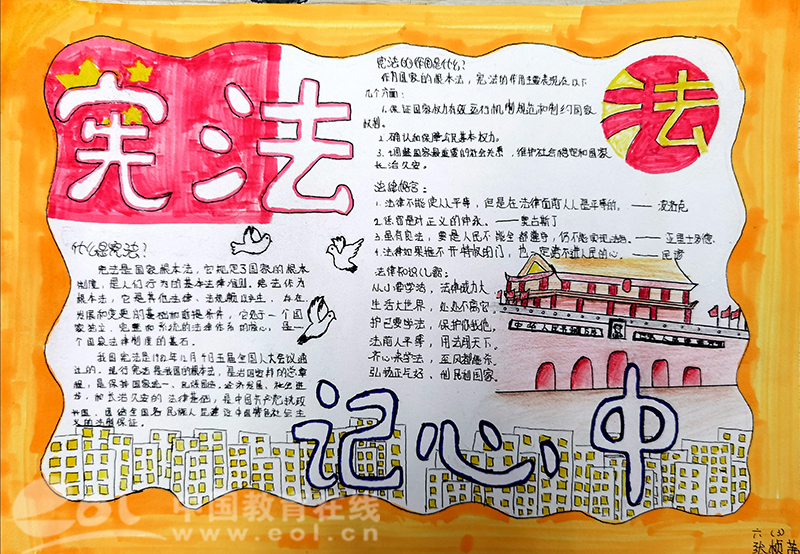 宪法
宪法的作用是什么?
作为国家的根本法,宪法的作用主要表现在以下
几个方面:
1.保证国家权力有效运行机制规范和制约国家
权利。
2.确认和保障公民基本权力。
3.调整国家最重要的社会关系,维护社会稳定和国家
长治久安。
法
法律格言:
1.法律不能使人人平等,但是在法律面前人人是平等的。——波洛克
2.法官是对正义的伸张。——奥古斯丁
3.虽有良法,要是人民不能全部遵守,仍不能实现法治。——亚里士多德
4.法律如果撬不开特权的门,也一定走不进人民的心。——民谚
法律知识儿歌:
从小学法,法律威力大
生活大世界,处处不离它,
护己要学法,保护你我他,
法前人平等,用法闯天下。
齐心来学法,
弘扬正气好,
什么是宪法?
宪法是国家根本法,它规定了国家的根本
制度,是人们行为的基本法律准则。宪法作为
根本法,它是其他法律、法规赖以产生、存在、
发展和变更的基础和前提条件,它是一个国
家独立、完整和系统的法律体系的核心,是一
个国家法律制度的基石。
我国宪法是1982年12月4日五届全国人大会议通
过的。现行宪法是我国的根本法,是治国安邦的总章
程,是保持国家统一、民族团结、经济发展、社会进
步,和长治久安的法律基础,是中国共产党执政
兴国、团结全国各民族人民建设中国特色社会主
义的法制保证。
中华人民共和国
记心中
eol 中国教育在线
www.eol.cn
六(3)
张桢